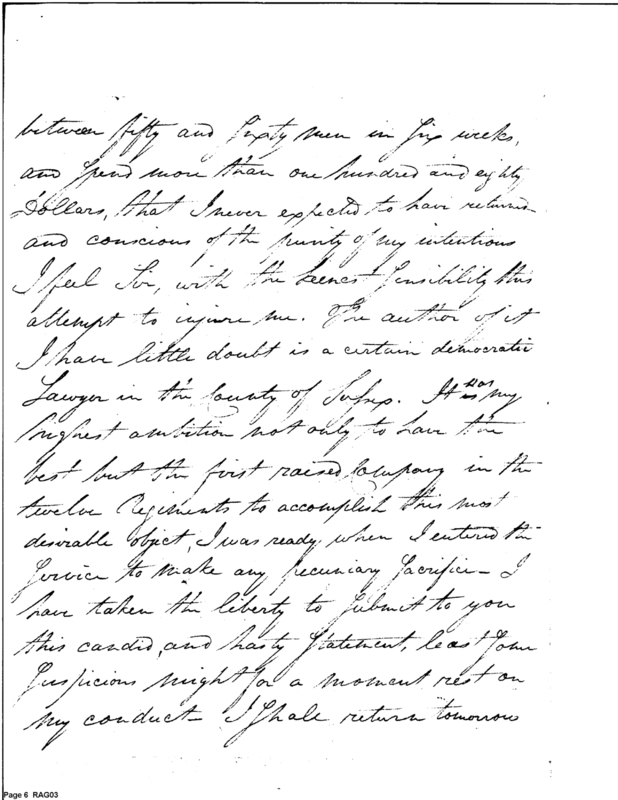 between fifty and Sixty men in Six weeks,
and Spend more than one hundred and eighty
Dollars, that I never expected to have returned
and conscious of the purity of my intentions
I feel Sir, with the keenest Sensibility this
attempt to injure me. The author of it
I have little doubt is a certain democratic
Lawyer in the County of Sussex. It was my
highest ambition not only to have the
best but the first raised Company in the
twelve Regiments to accomplish this most
desirable object, I was ready when I entered the
Service to make any pecuniary Sacrifice - I
have taken the liberty to Submit to you
this candid, and hasty Statement, least Some
Suspicious might for a moment rest on
my conduct - I Shale return tomorrow
Page 6 RAG03